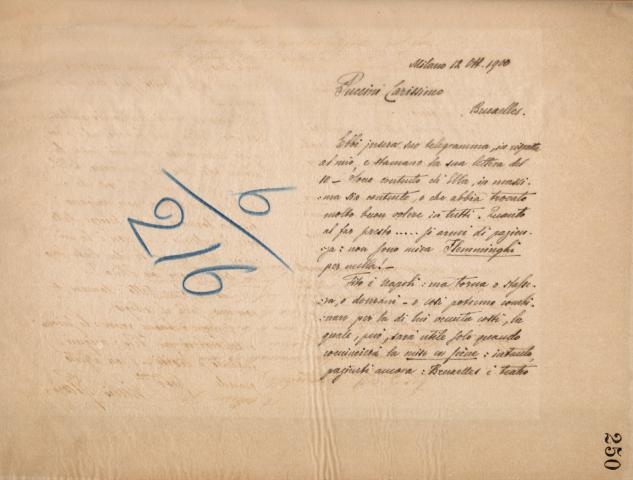 Milano 12 Ott. 1900
Puccini Carissimo
Bruxelles.
Ebbi jersera suo telegramma, in risposta
al mio, e stamane la sua lettera del
10 - Sono contento di Ella, in massi-
-ma sia contento, e che abbia trovato
molto buon volere in tutti. Quanto
al far presto ..... si armi di pazien-
-za: non sono mica Flemminghi
per nulla! -
Tito è a Napoli: ma torna o stasse-
-ra, o domani - e così potremo combi-
-nare per la di lui venuta costì, la
quale, però, sarà utile solo quando
comincierà la mise en scène: intanto,
pazienti ancora: Bruxelles è teatro
216/6
250